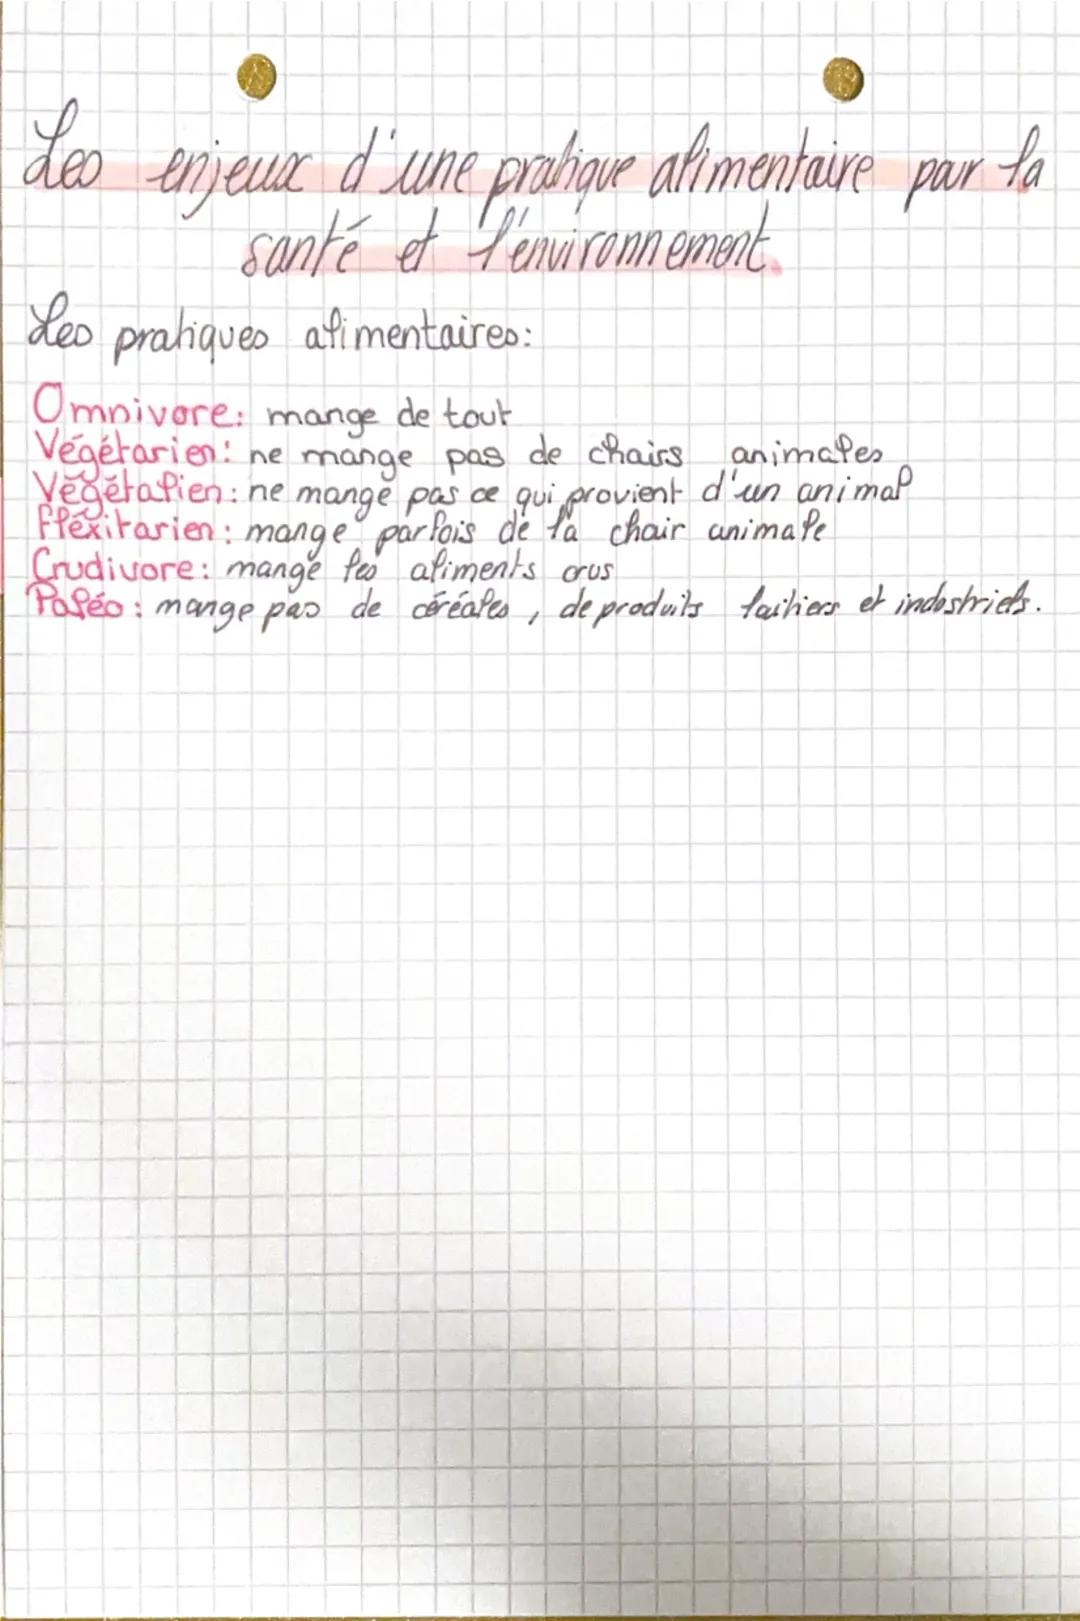 Les enjeux d'une pratique alimentaire pour la
santé et l'environnement.
Les pratiques alimentaires:
Omnivore: mange de tout
Végétarien: ne mange pas de chairs animales
Végétalien: ne mange pas ce qui provient d'un animal
Fléxitarien: mange parfois de la chair animale
Crudivore: mange les aliments crus
Paléo: mange pas de céréales, de produits laitiers et industriels.